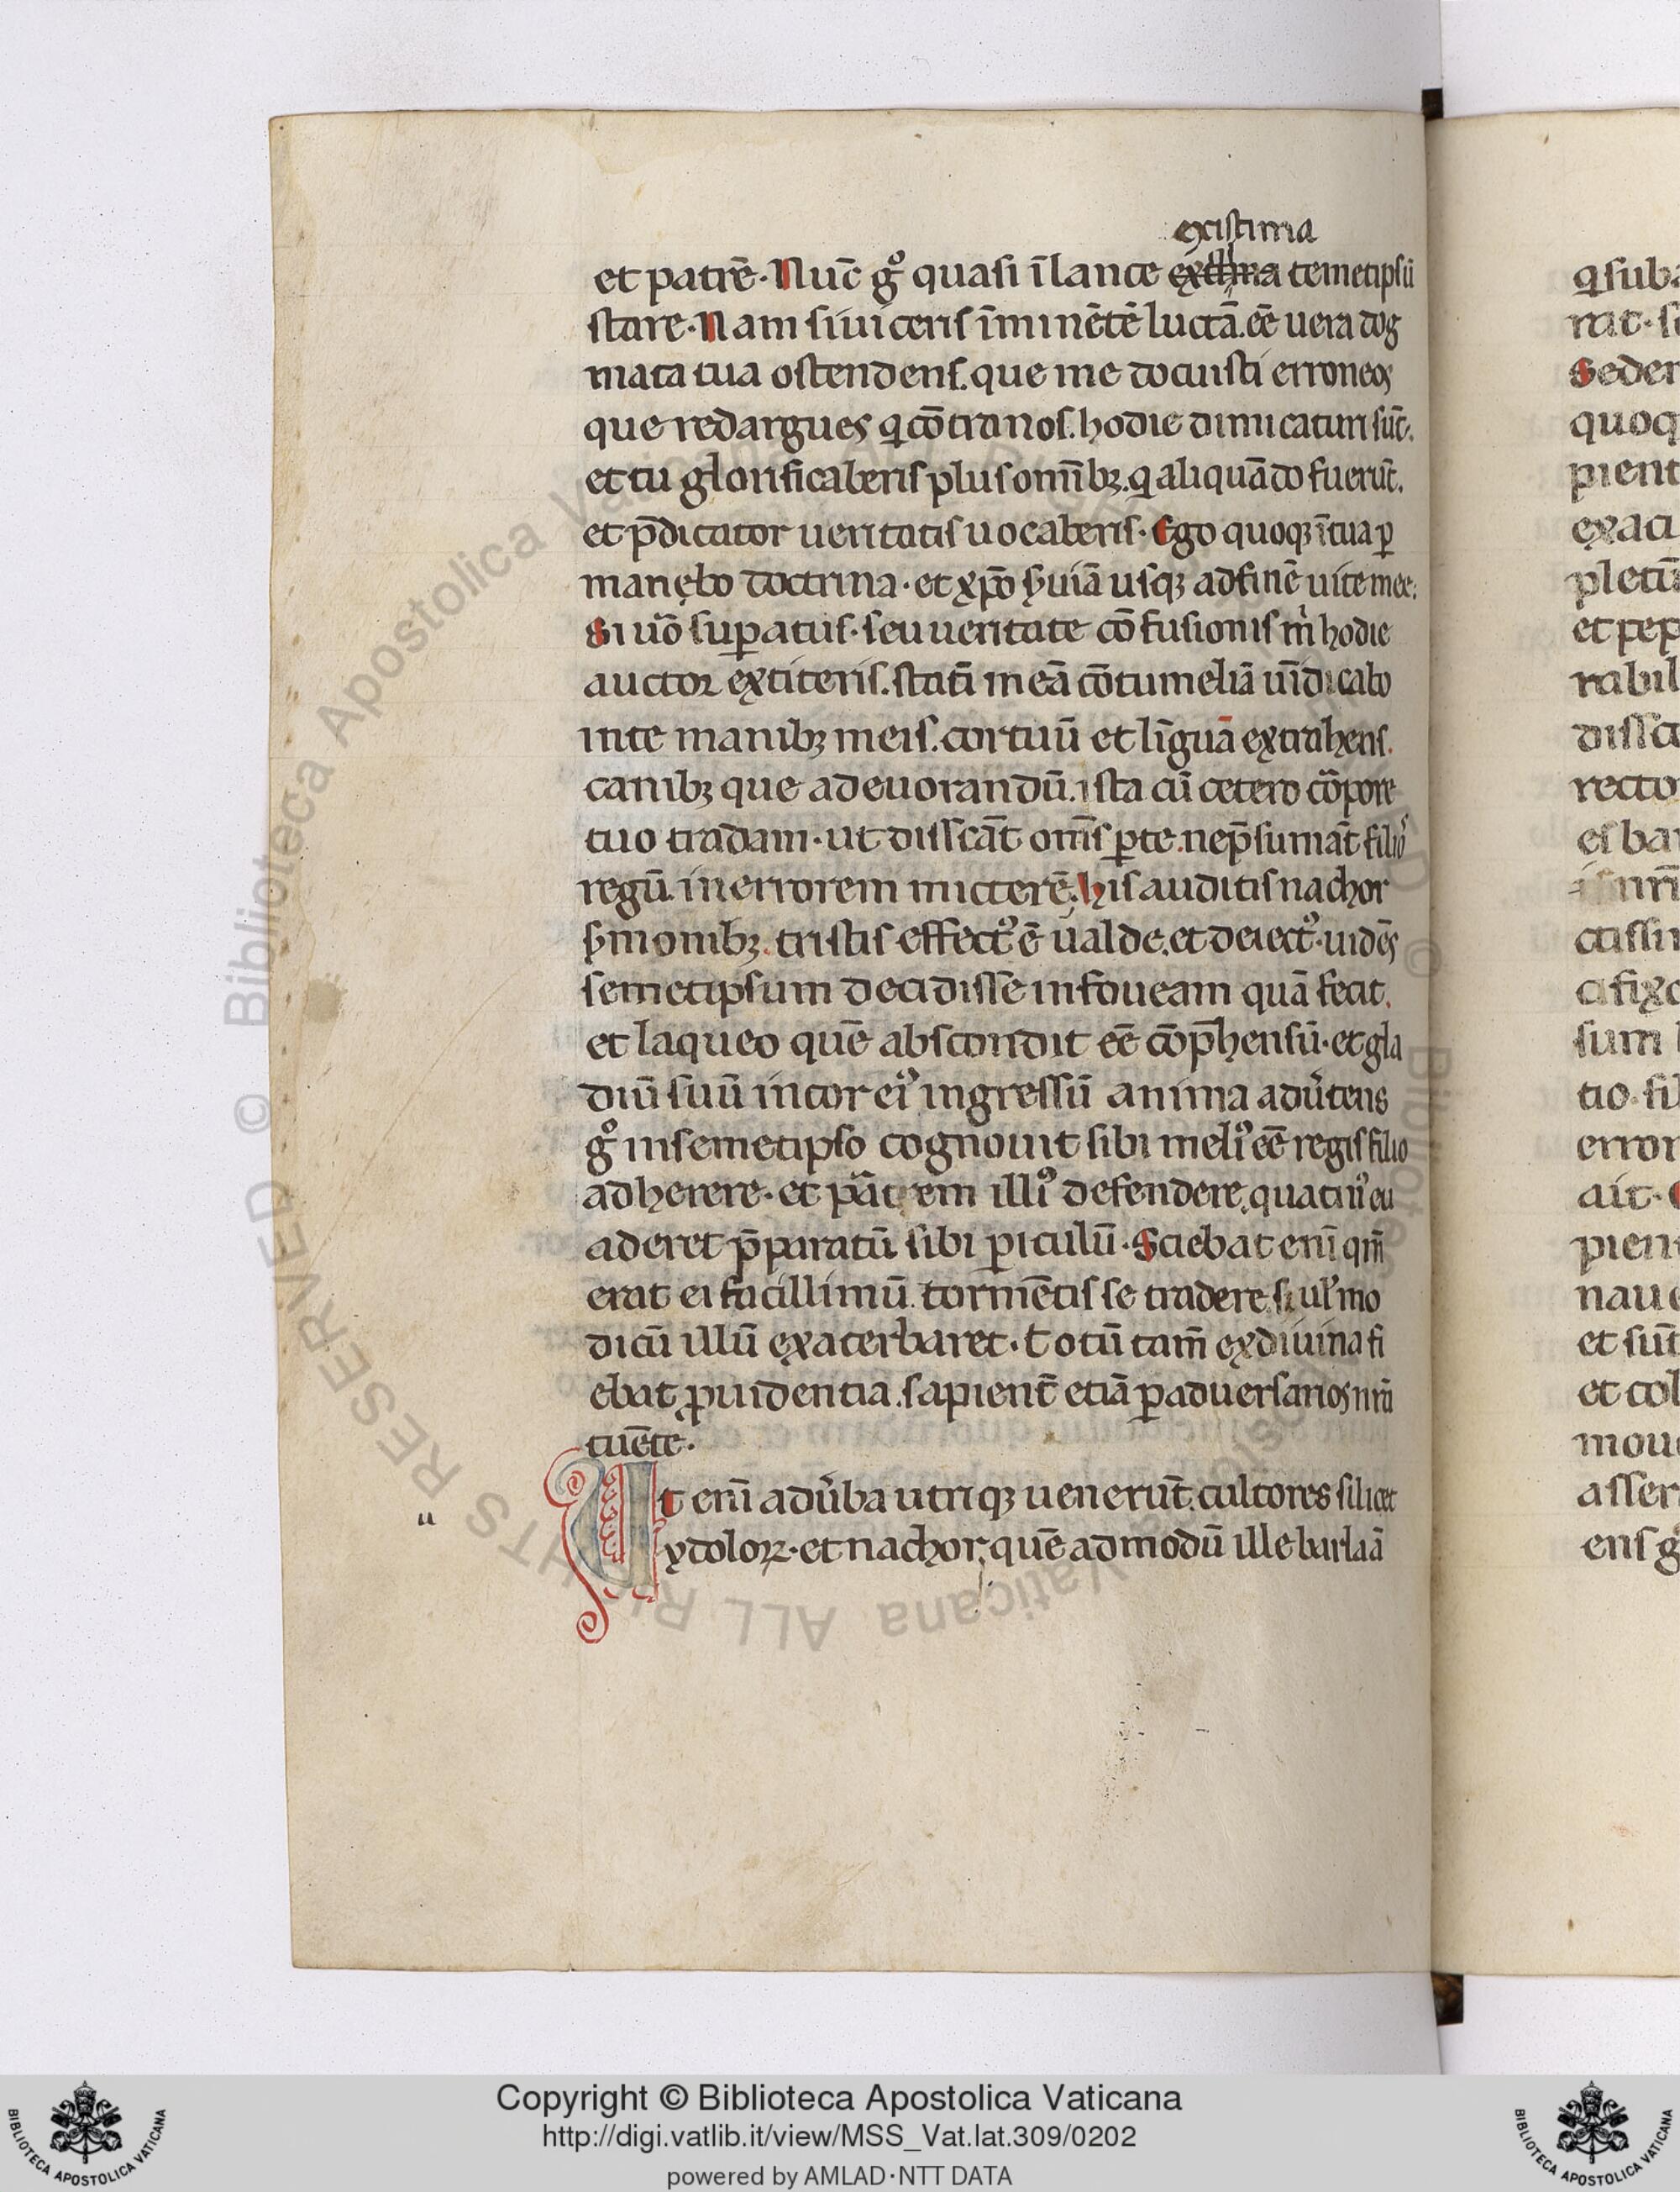 existima
et patrē. Nuc̄ gͦ quasi ī lance extima temetipsū
stare. Nam si uiceris īminētē luctā. eē uera dog
mata tua ostendens. que me docuisti erroneos
que redargues q cōtra nos. hodie dimicaturi sūt.
et tu glorificaberis plus om̄ibꝫ. q aliquādo fuerūt.
et p̄dicator ueritatis uocaberis. Ego quoqꝫ ī tua ꝑ
manebo doctrina. et xp̄o s̓uiā usqꝫ ad finē uite mee.
Si uō suꝑatus. seu ueritate cōfusionis m̓ hodie
auctor extiteris. statī meā cōtumeliā uīdicabo
in te manibꝫ meis. cor tuū et līguā extrahens.
canibꝫ que ad euorandū. ista cū cetero cōrpore
tuo tradam. ut discāt om̄s ꝑ te. ne p̄sumāt filioˢ
regū. in errorem mictere. His auditis nachor
s̓monibꝫ. tristis effectꝰ ē ualde. et deiectꝰ. uidēs
semetipsum decidisse in foueam quā fecit.
et laqueo quē abscondit eē cōp̄hensū. et gla
diū suū in cor eiꝰ ingressū anima adu̓tens
gͦ in semetipso cognouit sibi meliꝰ eē regis filio
adherere. et pāt em illiꝰ defendere. quatinꝰ eu
aderet p̄paratū sibi ꝑiculū. Sciebat eni qm̄
erat ei facillimū. tormētis se tradere. si ul̓ mo
dicū illū exacerbaret. Totū tam̄ ex diuina fi
ebat ꝓuidentia. sapient̄ etiā ꝑ aduersarios nr̄a
tuēte.
Ut eni ad u̓ba utriqꝫ uenerūt. cultores silicet
ydoloꝝ. et nachor. quē ad modū ille barlaā
q suba
Seder
quoq
pient
exaci
pletū
et pep
rabil
recto
es bar
a fixo
sum
tio. sil
error
ait.
pien
et sūt
et col
mou
asser
ens g
© Biblioteca Apostolica Vaticana ALL RIGHTS RESERVED
Copyright © Biblioteca Apostolica Vaticana
http://digi.vatlib.it/view/MSS_Vat.lat.309/0202
powered by AMLAD·NTT DATA
BIBLIOTECA APOSTOLICA VATICANA
BIBLIOTECA APOSTOLICA VATICANA